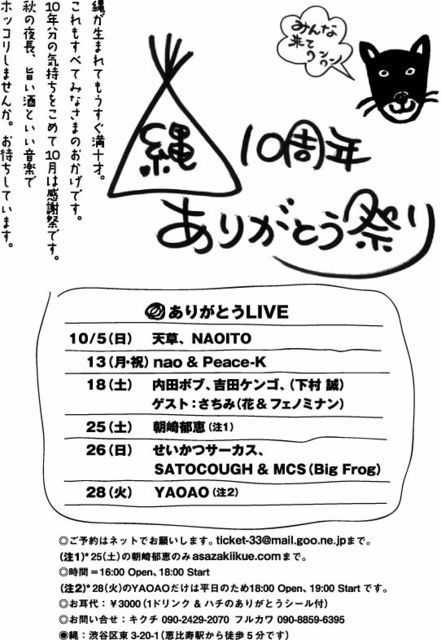 縄が生まれてもうすぐ満十才。
これもすべてみなさまのおかげです。
10年分の気持ちをこめて10月は感謝祭です。
秋の夜長、旨い酒といい音楽で
ホッコリしませんか。お待ちしています。
みんな
来てね
ワンワン
縄
10周年
ありがとう祭り
ありがとうLIVE
10/5(日) 天草、NAOITO
13(月・祝) nao & Peace-K
18(土) 内田ボブ、吉田ケンゴ、(下村 誠)
ゲスト:さちみ(花&フェノミナン)
25(土) 朝崎郁恵(注1)
26(日) せいかつサーカス、
SATOCOUGH & MCS (Big Frog)
28(火) YAOAO(注2)
◎ご予約はネットでお願いします。ticket-33@mail.goo.ne.jpまで。
(注1)*25(土)の朝崎郁恵のみasazakiikue.comまで。
◎時間=16:00 Open、18:00 Start
(注2)*28(火)のYAOAOだけは平日のため18:00 Open、19:00 Startです。
◎お耳代:¥3000(1ドリンク & ハチのありがとうシール付)
◎お問い合せ:キクチ 090-2429-2070 フルカワ 090-8859-6395
◉縄:渋谷区東3-20-1(恵比寿駅から徒歩5分です)